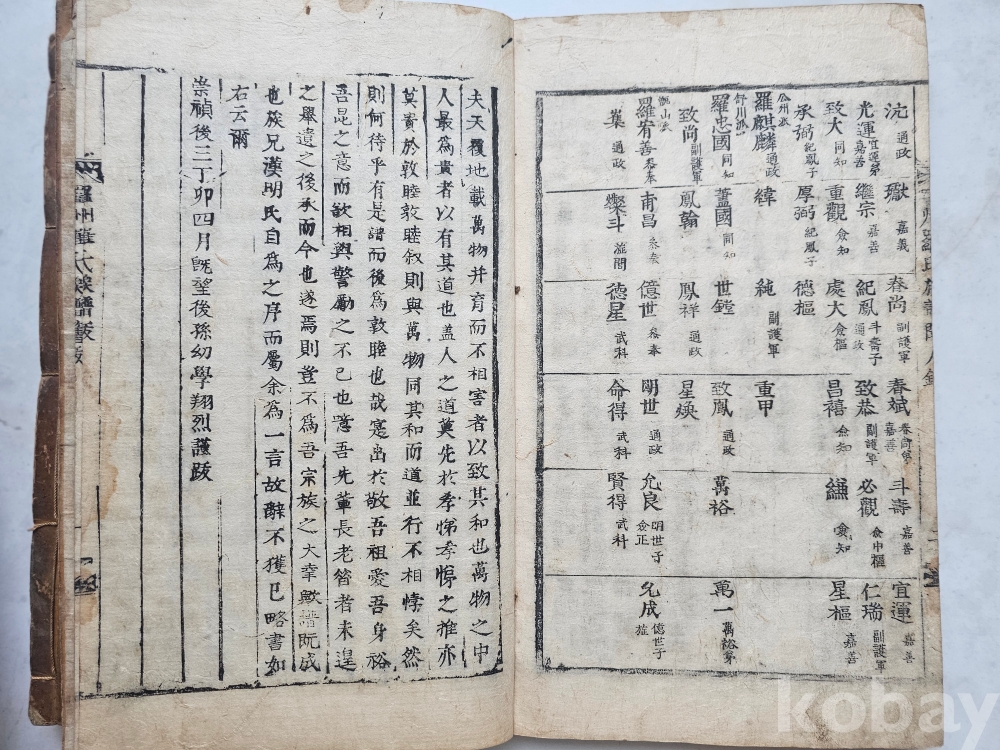 州羅氏族譜聞人錄
沆 通政 獻 嘉義 春尚 副護軍 春斌 春尚弟 嘉善 斗壽 嘉善 宜運 嘉善
光運 宜運弟 嘉善 繼宗 嘉善 紀鳳 斗壽子 通政 致恭 副護軍 必觀 僉中樞 仁瑞 副護軍
致大 同知 重觀 僉知 處大 僉樞 昌禧 僉知 縑 僉知 星樞 嘉善
承弼 紀鳳子 厚弼 紀鳳子 德樞
公州派
羅麒麟 通政 緯 純 副護軍 重甲
舒川派
羅忠國 同知 蓋國 同知 世鏜 致鳳 通政 萬裕 萬一 萬裕弟
致尚 副護軍 鳳翰 鳳祥 通政 星煥
羅宥善 參奉 甫昌 參奉 億世 參奉 明世 通政 允良 明世子 僉正 允成 億世子
集 通政 燦斗 德星 武科 命得 武科 賢得 武科
夫天覆地載萬物并育而不相害者以致其和也萬物之中
人最爲貴者以有其道也盖人之道莫先於孝悌孝悌之推亦
莫貴於敦睦敦睦叙則與萬物同其和而道並行不相悖矣然
則何待乎有是譜而後爲敦睦也哉寔出於敬吾祖愛吾身裕
吾昆之意而欲相與警勵之不已也噫吾先輩長老嘗者未遑
之擧遺之後承而今也遂焉則豈不爲吾宗族之大幸歟譜旣成
也族兄漢明氏自爲之序而屬余爲一言故辭不獲已略書如
右云爾
崇禎後三丁卯四月旣望後孫幼學翔烈謹跋
羅州羅氏族譜跋
kobay